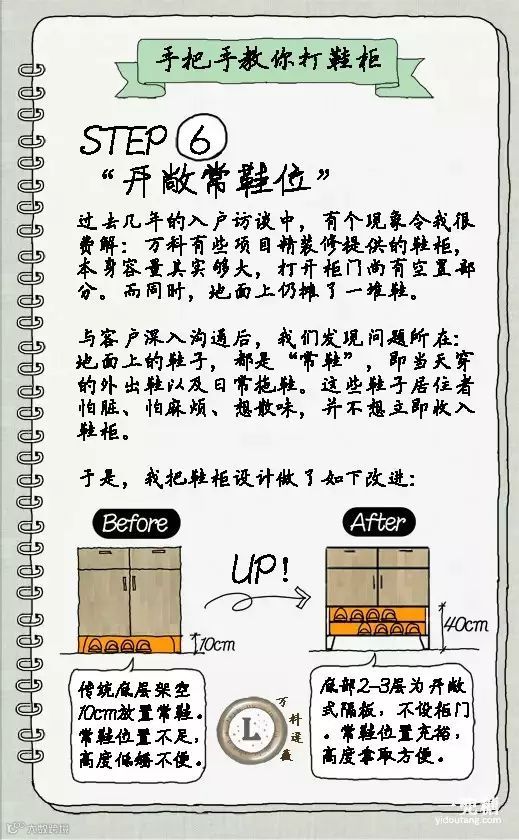 手把手教你打鞋柜
STEP 6
“开敞常鞋位”
过去几年的入户访谈中，有个现象令我很
费解：万科有些项目精装修提供的鞋柜，
本身容量其实够大，打开柜门尚有空置部
分。而同时，地面上仍摊了一堆鞋。
与客户深入沟通后，我们发现问题所在：
地面上的鞋子，都是“常鞋”，即当天穿
的外出鞋以及日常拖鞋。这些鞋子居住者
怕脏、怕麻烦、想散味，并不想立即收入
鞋柜。
于是，我把鞋柜设计做了如下改进：
Before
After
UP!
10cm
40cm
传统底层架空
10cm放置常鞋。
常鞋位置不足，
高度低矮不便。
底部2-3层为开敞
式隔板，不设柜门
。常鞋位置充裕，
高度拿取方便。
L
万科逯薇
大数跨境
一兜糖
yidoutang.com